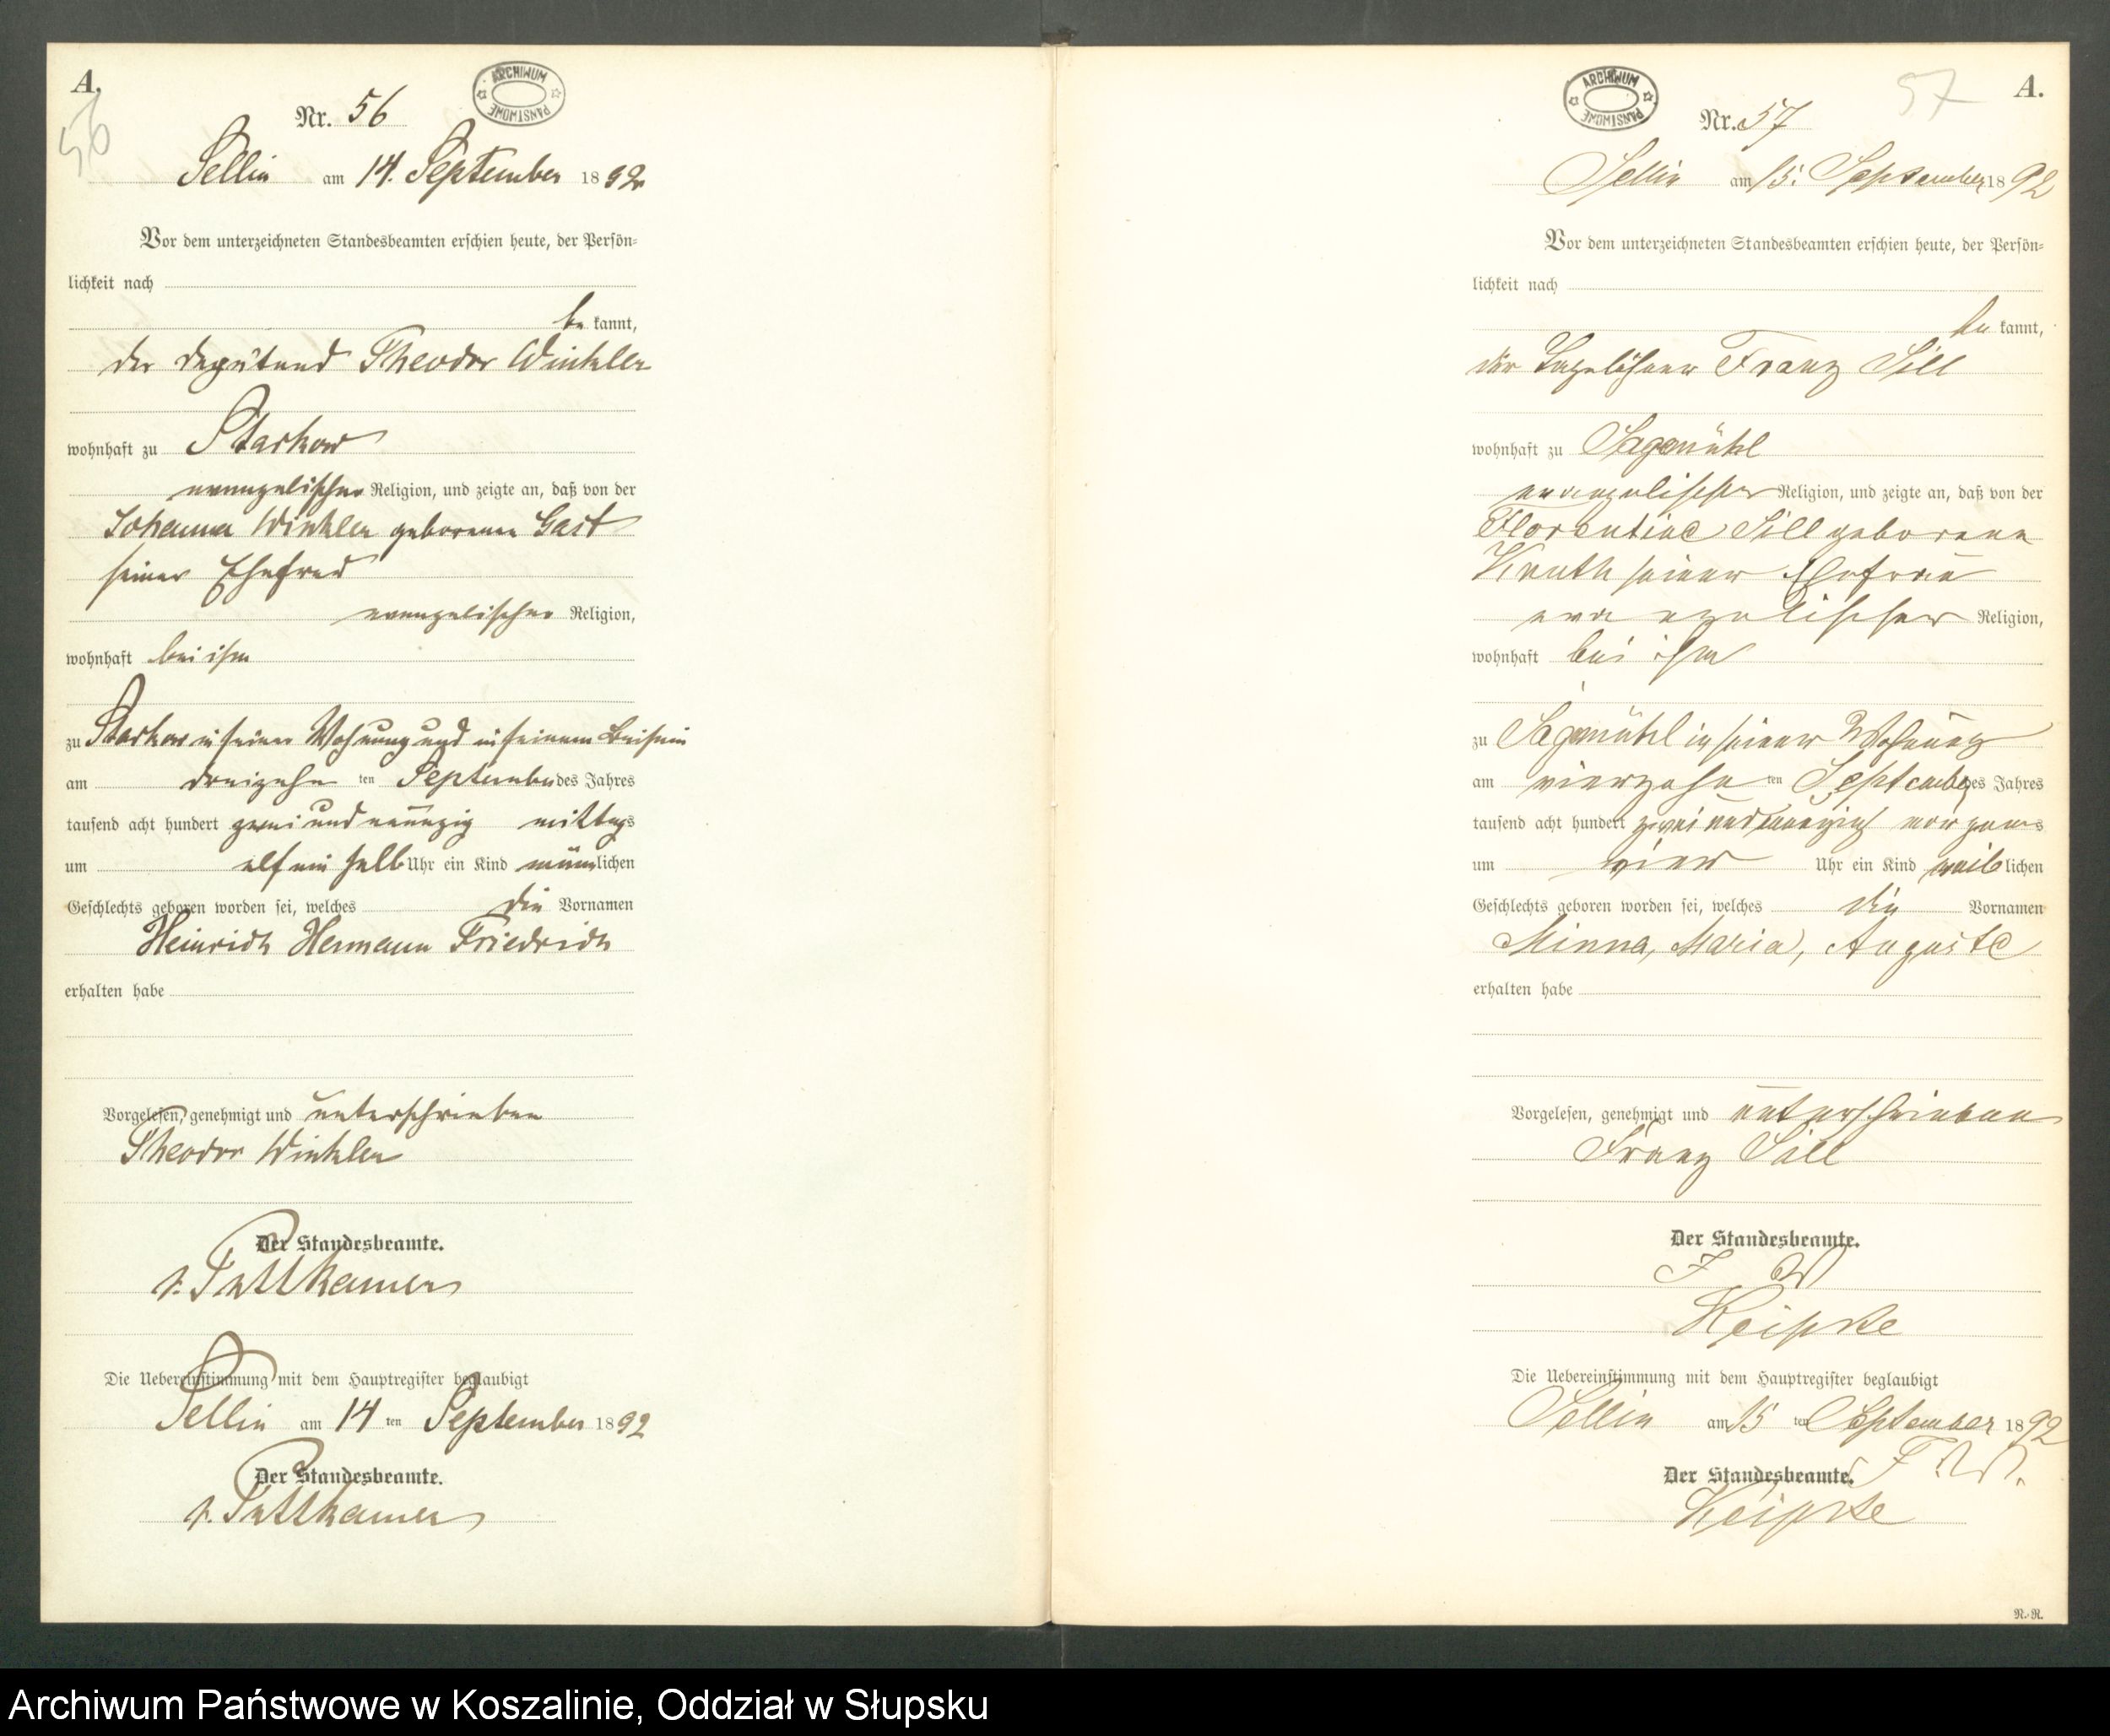 A.
56
ARCHIWUM PAŃSTWOWE
Nr. 56
Sellin am 14. September 1892
Vor dem unterzeichneten Standesbeamten erschien heute, der Persön-
lichkeit nach
be kannt,
der Deputand Theodor Winkler
wohnhaft zu Starkow
evangelischer Religion, und zeigte an, daß von der
Johanna Winkler geborenen Gast
seiner Ehefrau
evangelischer Religion,
wohnhaft bei ihm
zu Starkow in seiner Wohnung und in seinem Beisein
am dreizehn ten September des Jahres
tausend acht hundert zwei und neunzig mittags
um elf ein halb Uhr ein Kind männlichen
Geschlechts geboren worden sei, welches die Vornamen
Heinrich Hermann Friedrich
erhalten habe
Vorgelesen, genehmigt und unterschrieben
Theodor Winkler
Der Standesbeamte.
v. Puttkamer
Die Uebereinstimmung mit dem Hauptregister beglaubigt
Sellin am 14 ten September 1892
Der Standesbeamte.
v. Puttkamer
A.
57
ARCHIWUM PAŃSTWOWE
Nr. 57
Sellin am 15. September 1892
Vor dem unterzeichneten Standesbeamten erschien heute, der Persön-
lichkeit nach
be kannt,
der Tagelöhner Franz Sill
wohnhaft zu Sagemühl
evangelischer Religion, und zeigte an, daß von der
Florentine Sill geborene
seiner Ehefrau
evangelischer Religion,
wohnhaft bei ihm
zu Sagemühl in seiner Wohnung
am vierzehn ten September des Jahres
tausend acht hundert zwei und neunzig morgens
um vier Uhr ein Kind weiblichen
Geschlechts geboren worden sei, welches die Vornamen
Minna, Maria, Auguste
erhalten habe
Vorgelesen, genehmigt und unterschrieben
Franz Sill
Der Standesbeamte.
Die Uebereinstimmung mit dem Hauptregister beglaubigt
Sellin am 15 ten September 1892
Der Standesbeamte.
N.-R.
Archiwum Państwowe w Koszalinie, Oddział w Słupsku